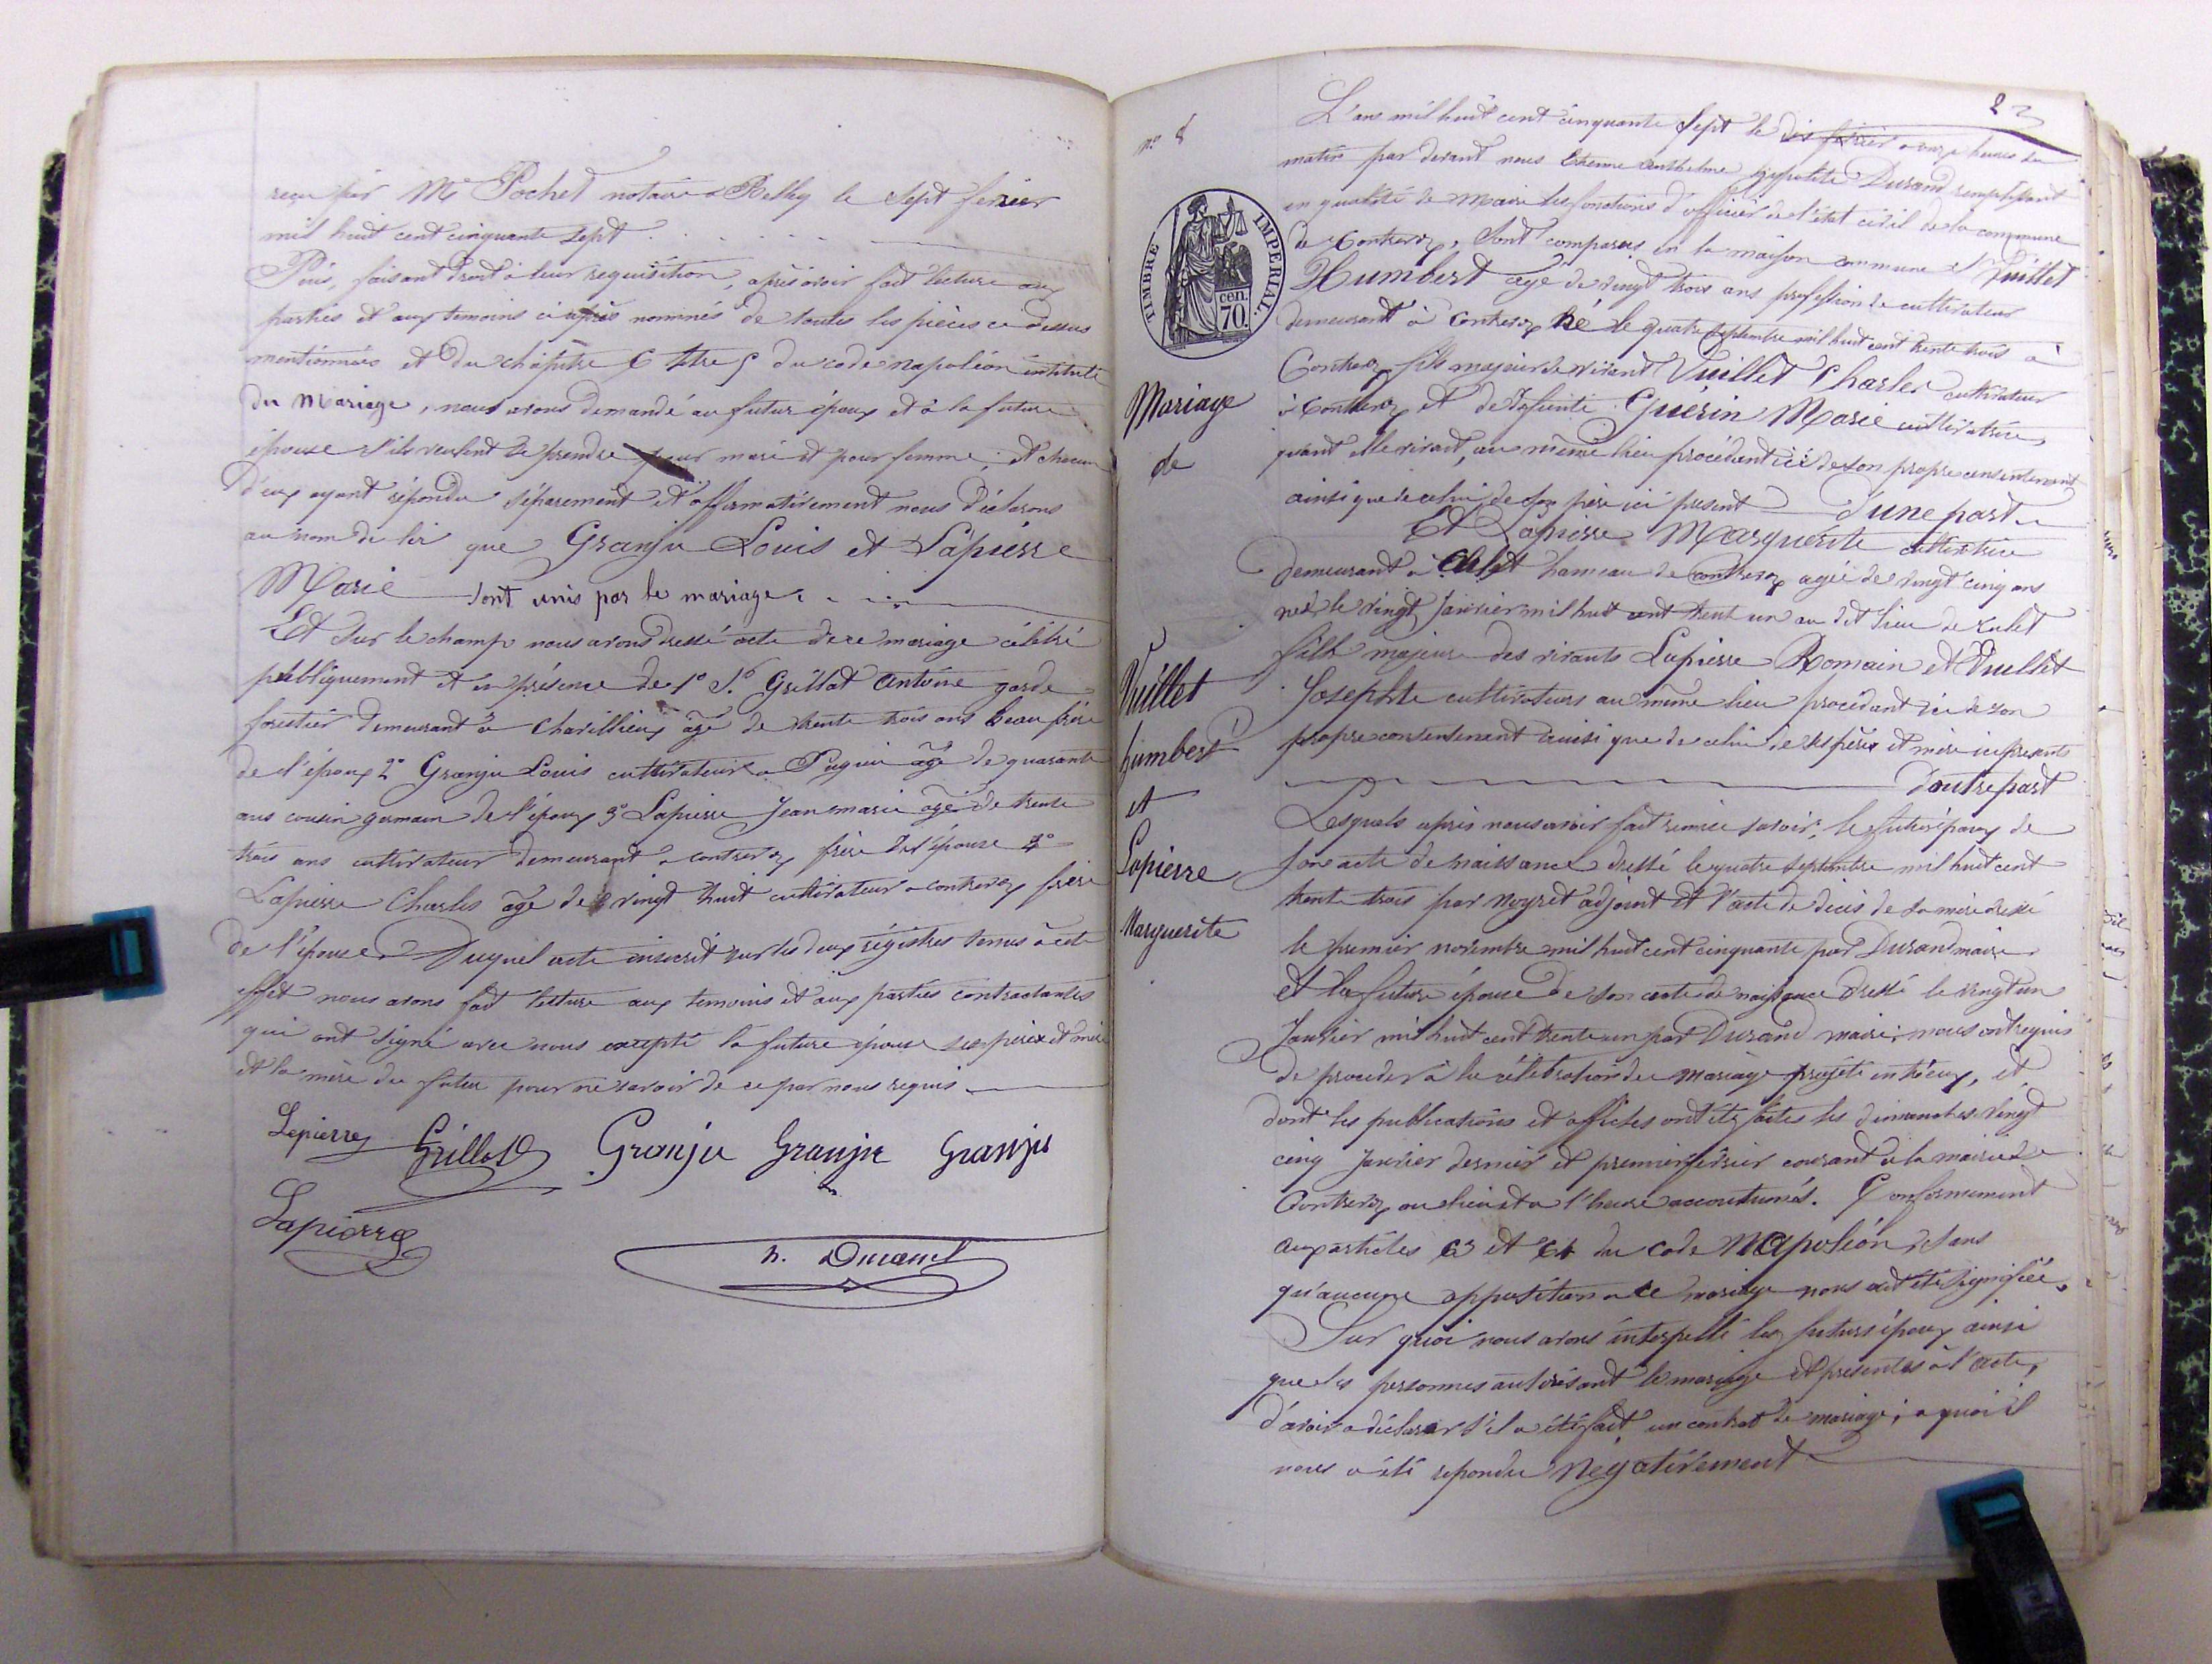 reçu par Me Pochet notaire a Belley le sept fevrier
mil huit cent cinquante sept
Puis, faisant droit à leur requisition, après avoir fait lecture aux
parties et aux temoins ci après nommés de toutes les pièces ci dessus
mentionnées et du chapitre 6 titre 5 du code napoléon intitulé
du Mariage, nous avons demandé au futur époux et à la future
épouse s'ils veulent se prendre pour mari et pour femme; et chacun
d'eux ayant répondu séparement et affirmativement nous déclarons
au nom de loi que Granju Louis et Lapierre
Marie sont unis par le mariage.
Et sur le champ nous avons dressé acte de ce mariage célébré
publiquement et en présence de 1° Sr Grillot Antoine garde
forestier demeurant à Chavillieu âgé de trente trois ans beau frère
de l'époux 2° Granju Louis cultivateur a Pugieu agé de quarante
ans cousin germain de l'époux 3° Lapierre Jean marie agé de trente
trois ans cultivateur demeurant a contrevoz frère de l'épouse 4°
Lapierre Charles âgé de vingt huit cultivateur a contrevoz frère
de l'épouse Duquel acte inscrit sur les deux régistres tenus à cet
effet nous avons fait lecture aux temoins et aux parties contractantes
qui ont signé avec nous excepté la future épouse ses père et mère
et la mère du futur pour ne savoir de ce par nous requis
Lapierre Grillot Granju Granju Granju
Lapierre
h. Durand
23
n° 8
TIMBRE IMPERIAL
cen. 70.
Mariage
de
Vuillet
humbert
et
Lapierre
Marguerite
L'an mil huit cent cinquante sept le dix février a onze heures du
matin par devant nous Etienne Anthelme hyppolite Durand remplissant
en qualité de Maire les fonctions d'officier de l'état civil de la commune
de Contrevoz, sont comparus en la maison commune Vuillet
Humbert agé de vingt trois ans profession de cultivateur
demeurant à Contrevoz né le quatre septembre mil huit cent trente trois à
Contrevoz fils majeur de vivant Vuillet Charles cultivateur
à Contrevoz et de defunte Guérin Marie cultivatrice
quant elle vivait, au même lieu procédant ici de son propre consentement
ainsi que de celui de son père ici present d'une part
Et Lapierre Marguerite cultivatrice
demeurant a hameau de Contrevoz agée de vingt cinq ans
née le vingt Janvier mil huit cent trent un au dit lieu de
fille majeure des vivants Lapierre Romain et Vuillet
Josephte cultivateurs au même lieu procédant ici de son
propre consentement ainsi que de celui de ses père et mère ici présents
D'autre part
Lesquels après nous avoir fait remise savoir: le futur époux de
son acte de naissance dressé le quatre septembre mil huit cent
trente trois par Noyret adjoint et l'acte de décès de sa mère dressé
le premier novembre mil huit cent cinquante par Durand maire
et la future épouse de son acte de naissance dressé le vingt un
Janvier mil huit cent trente un par Durand maire; nous ont requis
de proceder à la célébration du mariage projété entr'eux, et
dont les publications et affiches ont été faites les dimanches vingt
cinq Janvier dernier et premier février courant à la mairie de
Contrevoz au lieu et a l'heure accoutumés. Conformement
aux articles 63 et 64 du Code Napoléon, sans
qu'aucune opposition a ce mariage nous ait été signifiée.
Sur quoi nous avons interpellé les futurs époux ainsi
que les personnes autorisant le mariage et présentes à l'acte,
d'avoir a déclarer s'il a été fait un contrat de mariage; a quoi il
nous a été repondu Négativement